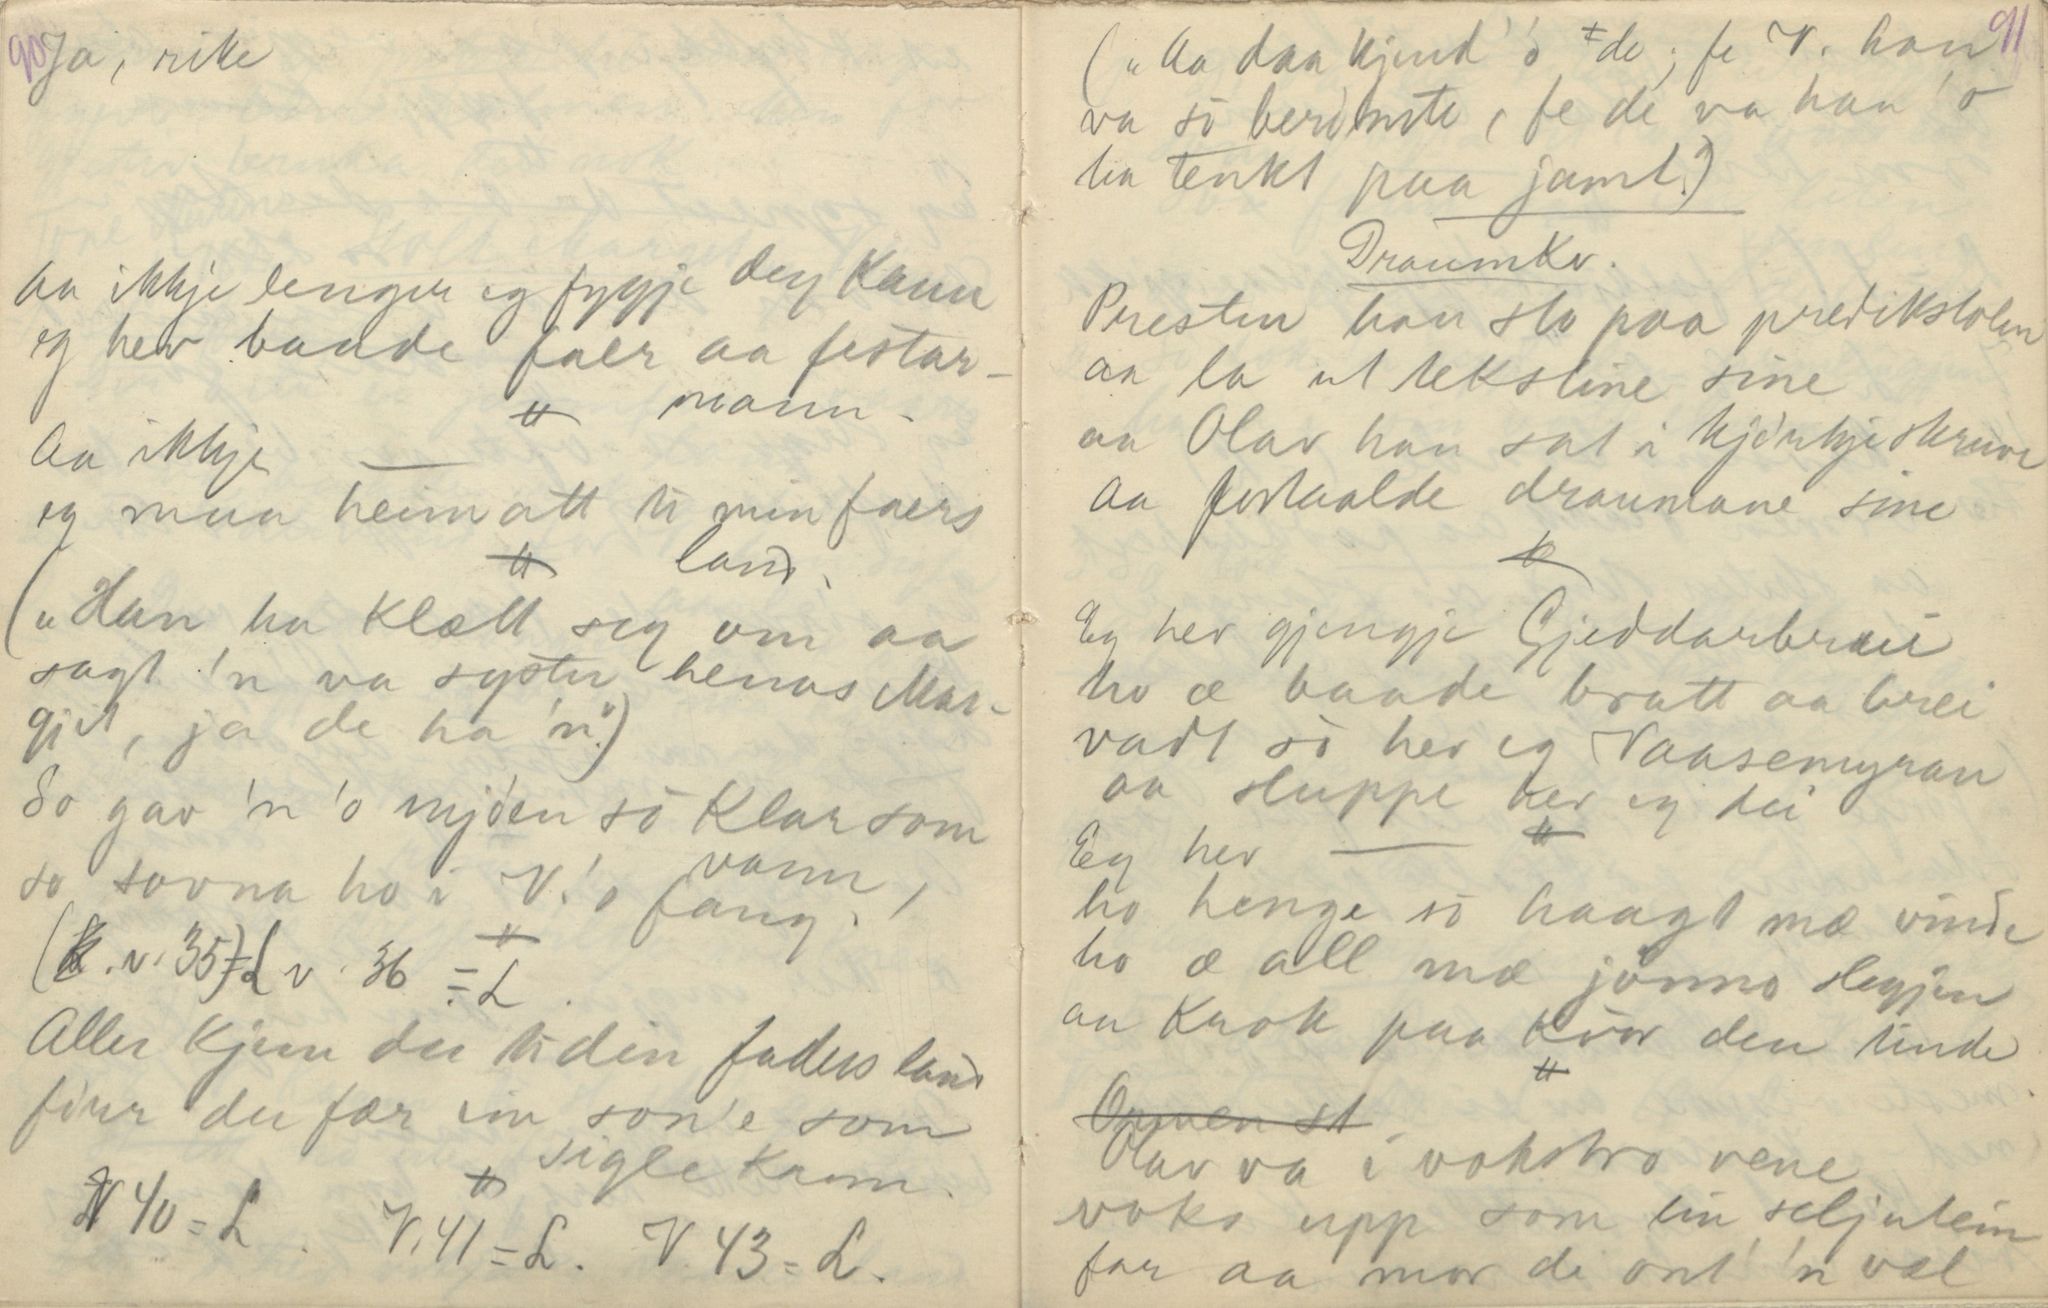 90
Ja, rike
Aa ikkje lenger eg fygje deg kann
eg hev baade faer aa festar-
mann.
Aa ikkje —
eg maa heimatt ti min faers
land.
("Han ha klætt seg om aa
sagt 'n va syster hennas Mar-
gjit, ja de ha 'n.")
So gav 'n 'o mjöen sö klar som
vann,
so sovna ho i V.'s fang.
(K. v. 35) = L v. 36 = L.
Aller kjem du ti din faders land
förr du fær ein son'e som
sigle kann.
V 40 = L. V. 41 = L. V. 43 = L.
91
("Aa daa kjend' 'o de; fe V. han
va sö berömte, fe de va han 'o
ha tenkt paa jamt.")
Draumkv.
Presten han sto paa predikstolen
aa la ut tekstine sine
aa Olav han sat i kjörkjeskruve
aa fortaalde draumane sine
Eg hev gjengje Gjeddarbrui
ho æ baade bratt aa brei
vadt sö hev eg Vaasemyran
aa sluppe hev eg dei
Eg hev —
ho henge sö haagt mæ vinde
ho æ all mæ jönno slegjen
aa krok paa kvör den tinde
Ormen st
Olav va i vokstro vene
voks upp som ein seljutein
far aa mor de ont' 'n vel